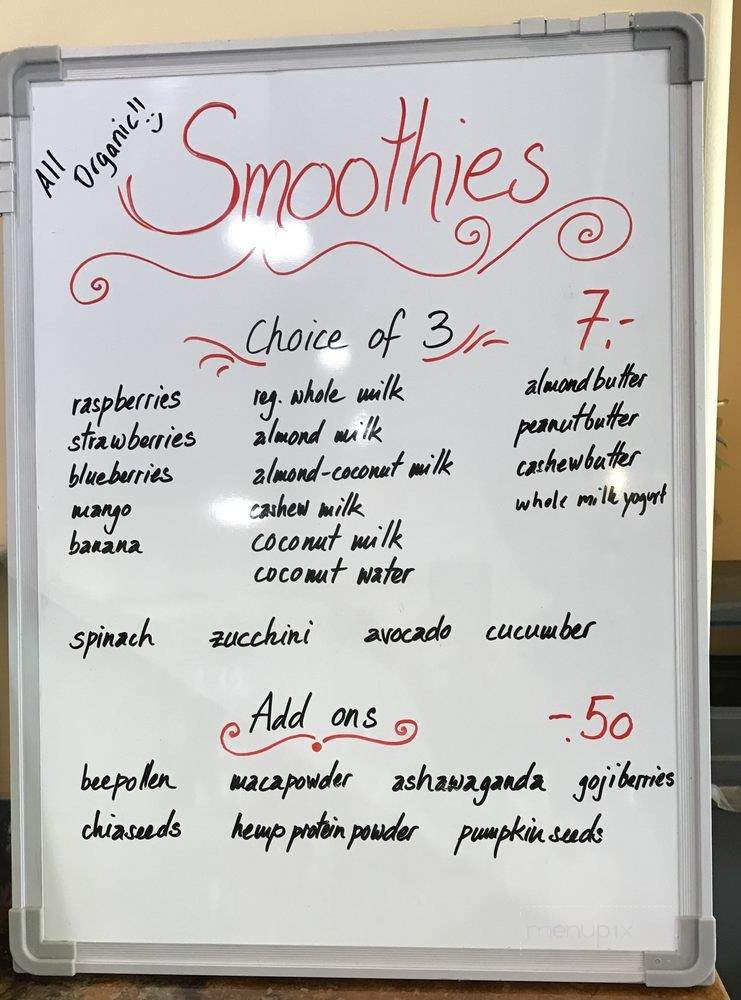 All Organic!! :)
Smoothies
Choice of 3 7.-
raspberries reg. whole milk almondbutter
strawberries almond milk peanutbutter
blueberries almond-coconut milk cashewbutter
mango cashew milk whole milk yogurt
banana coconut milk
coconut water
spinach zucchini avocado cucumber
Add ons -.50
beepollen macapowder ashawaganda gojiberries
chiaseeds hemp protein powder pumpkin seeds
menupix